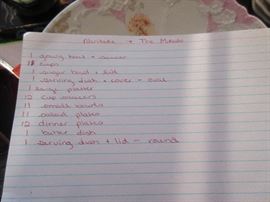 Noritake → The Mikado
1 gravy bowl + saucer
11 cups
1 sugar bowl + lid
1 serving dish + cover - oval
1 large platter
12 cup saucers
11 small bowls
11 salad plates
12 dinner plates
1 butter dish
1 serving dish + lid - round